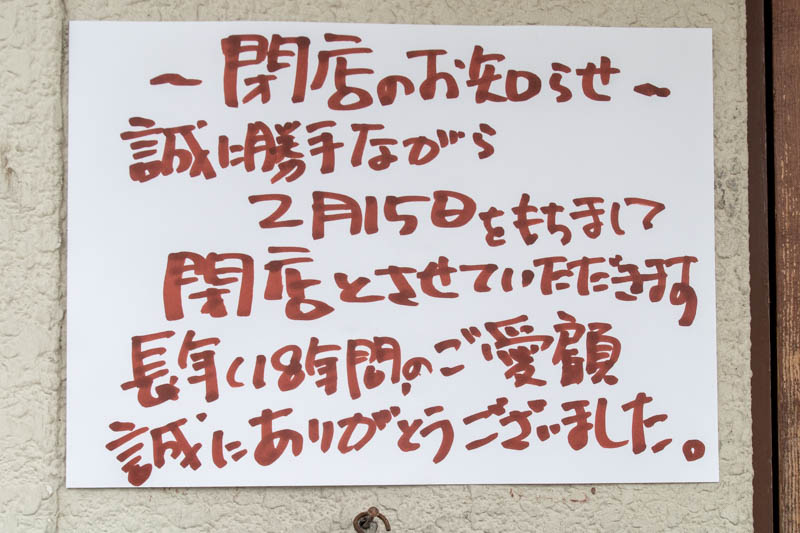 ~閉店のお知らせ~
誠に勝手ながら
2月15日をもちまして
閉店とさせていただきます
長年い18年間のご愛顧
誠にありがとうございました。